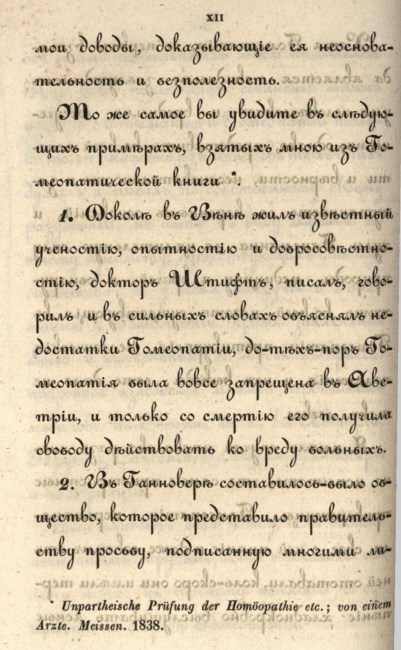 XII
мои доводы, доказывающіе ея неоснова-
тельность и безполезность.
То же самое вы увидите въ слѣдую-
щихъ примѣрахъ, взятыхъ мною изъ Го-
меопатической книги *.
1. Доколѣ въ Вѣнѣ жилъ извѣстный
ученостію, опытностію и добросовѣстно-
стію, докторъ Штифтъ, писалъ, гово-
рилъ и въ сильныхъ словахъ объяснялъ не-
достатки Гомеопатіи, до-тѣхъ-поръ Го-
меопатія была вовсе запрещена въ Авс-
тріи, и только со смертію его получила
свободу дѣйствовать ко вреду больныхъ.
2. Въ Ганноверѣ составилось-было об-
щество, которое представило правитель-
ству просьбу, подписанную многими ли-
* Unpartheische Prüfung der Homöopathie etc.; von einem
Arzte. Meissen. 1838.